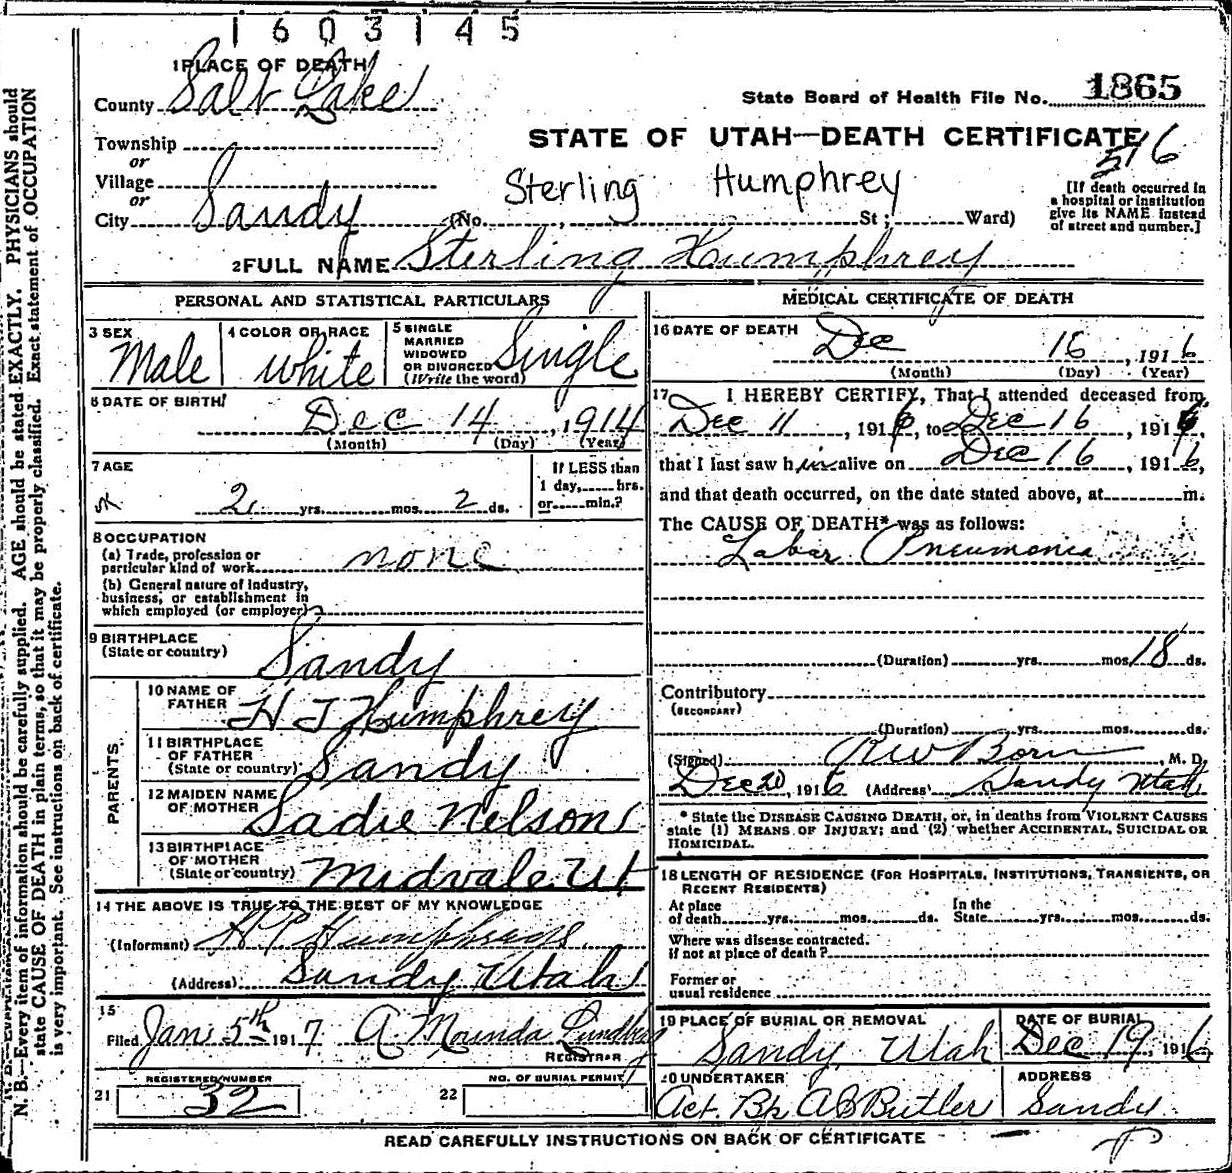 1603145
1 PLACE OF DEATH
County Salt Lake
State Board of Health File No. 1865
Township
or
Village
or
City Sandy
STATE OF UTAH—DEATH CERTIFICATE
516
Sterling Humphrey
(No. , St; Ward)
[If death occurred in
a hospital or institution
give its NAME instead
of street and number.]
2 FULL NAME Sterling Humphrey
PERSONAL AND STATISTICAL PARTICULARS
3 SEX
Male
4 COLOR OR RACE
White
5 SINGLE
MARRIED
WIDOWED
OR DIVORCED
(Write the word)
Single
6 DATE OF BIRTH
Dec 14, 1914
(Month) (Day) (Year)
7 AGE
2 yrs. mos. 2 ds.
If LESS than
1 day, hrs.
or min.?
8 OCCUPATION
(a) Trade, profession or
particular kind of work none
(b) General nature of industry,
business, or establishment in
which employed (or employer)
9 BIRTHPLACE
(State or country) Sandy
PARENTS
10 NAME OF
FATHER H J Humphrey
11 BIRTHPLACE
OF FATHER
(State or country) Sandy
12 MAIDEN NAME
OF MOTHER Sadie Nelson
13 BIRTHPLACE
OF MOTHER
(State or country) Midvale Ut
14 THE ABOVE IS TRUE TO THE BEST OF MY KNOWLEDGE
(Informant)
(Address) Sandy Utah
15
Filed Jan 5th 1917 A Lundberg
REGISTRAR
REGISTERED NUMBER
21 32
NO. OF BURIAL PERMIT
22
MEDICAL CERTIFICATE OF DEATH
16 DATE OF DEATH
Dec 16, 1916
(Month) (Day) (Year)
17 I HEREBY CERTIFY, That I attended deceased from
Dec 11, 1916, to Dec 16, 1916,
that I last saw him alive on Dec 16, 1916,
and that death occurred, on the date stated above, at m.
The CAUSE OF DEATH* was as follows:
Labar Pneumonia
(Duration) yrs. mos. 18 ds.
Contributory
(SECONDARY)
(Duration) yrs. mos. ds.
(Signed) R W Born, M. D.
Dec 20, 1916 (Address) Sandy Utah
* State the DISEASE CAUSING DEATH, or, in deaths from VIOLENT CAUSES
state (1) MEANS OF INJURY; and (2) whether ACCIDENTAL, SUICIDAL OR
HOMICIDAL.
18 LENGTH OF RESIDENCE (FOR HOSPITALS, INSTITUTIONS, TRANSIENTS, OR
RECENT RESIDENTS)
At place
of death yrs. mos. ds.
In the
State yrs. mos. ds.
Where was disease contracted,
if not at place of death?
Former or
usual residence
19 PLACE OF BURIAL OR REMOVAL
Sandy, Utah
DATE OF BURIAL
Dec 19, 1916
20 UNDERTAKER
Act. Bp A B Butler
ADDRESS
Sandy
READ CAREFULLY INSTRUCTIONS ON BACK OF CERTIFICATE
N. B.—Every item of information should be carefully supplied. AGE should be stated EXACTLY. PHYSICIANS should
state CAUSE OF DEATH in plain terms, so that it may be properly classified. Exact statement of OCCUPATION
is very important. See instructions on back of certificate.